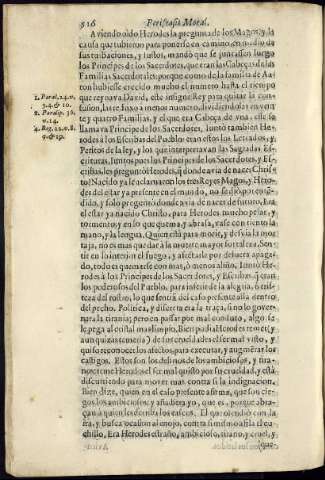 516 Periſtaſis Moral.
Aviendo oido Herodes la pregunta de los Magos, y la
cauſa que tubieron para ponerſe en camino en medio de
ſus turbaciones, y ſuſtos, mandò que ſe juntaſſen luego
los Principes de los Sacerdotes, que eran las Cabeças de las
Familias Sacerdotales; porque como de la familia de Aa-
ron hubieſſe crecido mucho el numero hàſta el tiempo
que reynava David, eſte inſigne Rey para quitar la con-
fuſion, las reduxo à menor numero, dividiendolas en vein-
te y quatro Familias, y el que era Cabeça de vna, eſſe ſe
llamava Principe de los Sacerdotes. Juntò tambien He-
rodes à los Eſcribas del Pueblo, eran eſtos los Letrados, y
Peritos de la ley, y los que interpretavan las Sagradas Eſ-
crituras. Juntos pues los Principes de los Sacerdotes, y Eſ-
cribas, les preguntò Herodes, q donde avia de nacer Chriſ-
to? Nacido ya ſe le aclamaron los tres Reyes Magos, y Hero-
des del eſtar ya preſente en el mundo, no ſe dixo por enten-
dido, y ſolo preguntò donde avia de nacer de futuro. Era
el eſtar ya nacido Chriſto, para Herodes mucho peſar, y
tormento; y en lo que quema, y abraſa, vaſe con tiento la
mano, y la lengua. Quien eſtà para morir, y deſvia la mor-
taja, no es mas que dar à la muerte mayor fortaleza. Sen-
tir en lo interior el fuego, y afectarle por defuera apaga-
do, todo es quemarſe con mas, ò menos aliño. Juntò Hero-
des à los Principes de los Sacerdotes, y Eſcribas, q eran
los poderoſos del Pueblo, para inferir de la alegria, ò triſ-
teza del roſtro, lo que ſentia del caſo preſente allà dentro
del pecho. Politica, y diſcreta era la traça, ſi no la gover-
nara la tirania; pero en paſſar por mal conducto, algo ſe
le pega al criſtal mas limpio. Bien podia Herodes temer (y
aun quizàs temeria) de ſus crueldades el ſer mal viſto, y
quiſo reconocer los afectos, para executar, y augmentar los
caſtigos. Eſtos ſon los deſtinos de los ambicioſos, y tira-
nos: teme Herodes el ſer mal quiſto por ſu crueldad, y eſtà
diſcurriendo para mover mas contra ſi la indignacion.
Bien dize, quien en el caſo preſente afirma, que ſon cie-
gos los ambicioſos; y añadiera yo, que es, porque abra-
çan à quien les derriba los caſcos. El que ofendiò con la
ira, y buſca ocaſion al enojo, contra ſi miſmo afila el cu-
chillo. Era Herodes eſtraño, ambicioſo, tirano, y cruel, y
que
1. Paral. 24. v.
3. 4. & 10.
2. Paralip. 36.
v. 14.
4. Reg. 22. v. 8.
9. & 19.